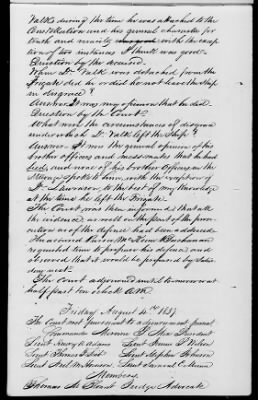 Valk during the time he was attached to the
Constitution and his general character for
truth and veracity with the excep
tion of two instances I think was good.
Question by the accused.
When Lt. Valk was detached from the
Frigate did he or did he not leave the Ship
in disgrace?
Answer. It was my opinion that he did.
Question by the Court.
What were the circumstances of disgrace
under which Lt. Valk left the Ship?
Answer. It was the general opinion of his
brother officers and messmates that he had
lied, and none of his brother Officers in the
spoke to him, with the exception of
to the best of my knowledge
at the time he left the Frigate.
The Court was then informed that all
the evidence as well on the part of the prose
cution as of the defence had been adduced
The accused Buchanan
requested time to prepare his defence and
that it would be prepared by Satur
day next.
The Court adjourned until tomorrow at
half past ten o'clock A.M.
Friday August 4th 1837
The Court met pursuant to adjournment present
Commander President
Lieut Henry A. Adams Lieut
Lieut Thomas Lieut Stephen Johnson
Lieut Lieut
Members
Thomas Judge Advocate